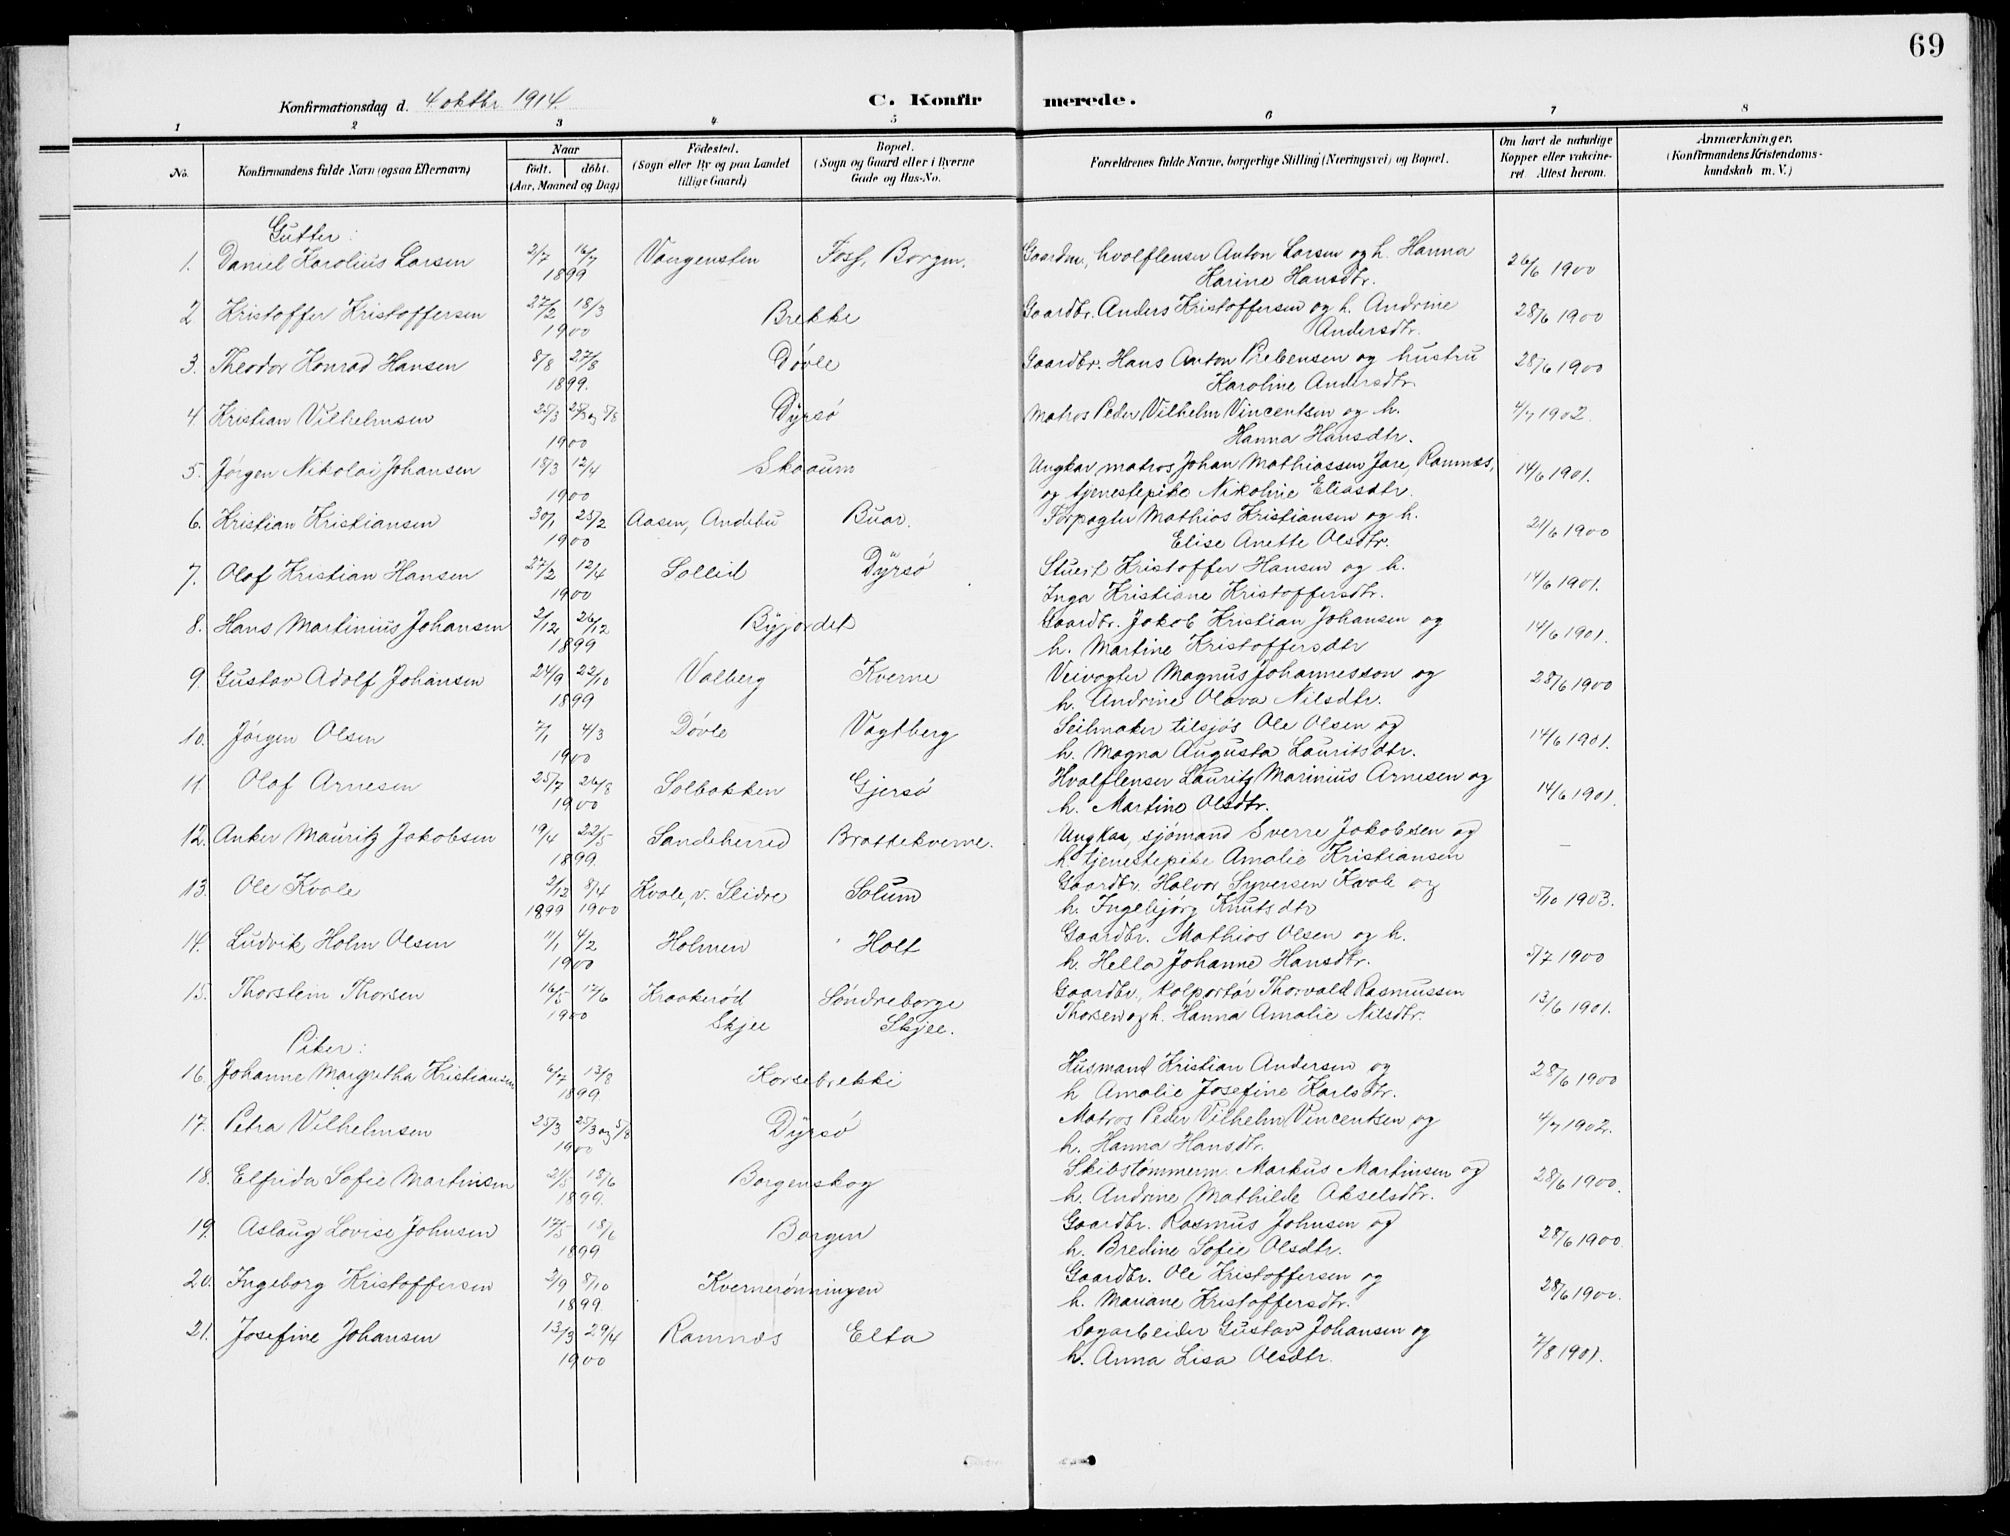 69
Konfirmationsdag d. 4 oktbr 1914. C. Konfirmerede.
1 2 3 4 5 6 7 8
No. Konfirmandens fulde Navn (ogsaa Efternavn) Naar födt. döbt. (Aar, Maaned og Dag) Födested. (Sogn eller By og paa Landet tillige Gaard) Bopæl. (Sogn og Gaard eller i Byerne Gade og Hus-No. Forældrenes fulde Navne, borgerlige Stilling (Næringsvei) og Bopæl. Om havt de naturlige Kopper eller vakcineret Attest herom. Anmærkninger. (Konfirmandens Kristendomskundskab m. V.)
Gutter:
1. Daniel Karolius Larsen 2/7 16/7 Vangensten Fosf, Borgen. Gaardm, hvalflenser Anton Larsen og h. Hanna 26/6 1900
1899 Karine Hansdtr.
2 Kristoffer Kristoffersen 27/2 18/3 Brekke Gaardbr. Anders Kristoffersen og h. Andrine 28/6 1900
1900 Andersdtr.
3. Theodor Konrad Hansen 8/8 27/8 Døvle Gaardbr. Hans Anton Prebensen og hustru 28/6 1900
1899. Karoline Andersdtr.
4. Kristian Vilhelmsen 25/3 25/3 og 5/8 Dyrsø Matros Peder Vilhelm Vincentsen og h. 4/7 1902
1900 Hanna Hansdtr.
5. Jørgen Nikolai Johansen 18/3 12/4 Skaaum Ungkar matros Johan Mathiassen Jare, Ramnes, 14/6 1901.
1900 og tjenestepike Nikoline Eliasdtr.
6. Kristian Kristiansen 30/1 25/2 Aasen, Andebu Buar. Forpagter Mathias Kristiansen og h. 21/6 1900
1900 Elise Anette Olsdtr.
7. Olaf Kristian Hansen 27/2 12/4 Sollid Dyrsø Stuert Kristoffer Hansen og h. 14/6 1901.
1900 Inga Kristiane Kristoffersdtr.
8. Hans Martinius Johansen 2/12 26/12 Byjordet Gaardbr. Jakob Kristian Johansen og 14/6 1901.
1899 h. Martine Kristoffersdtr
9. Gustav Adolf Johansen 24/9 22/10 Valberg Kverne Veivogter Magnus Johannesson og 28/6 1900
1899 h. Andrine Olava Nilsdtr.
10. Jørgen Olsen 7/1 4/3 Døvle Vagtberg Seilmaker tilsjøs Ole Olsen og 14/6 1901.
1900 h. Magna Augusta Lauritsdtr.
11. Olaf Arnesen 25/7 26/8 Solbakken Gjersø Hvalflenser Lauritz Marinius Arnesen og 14/6 1901.
1900 h. Martine Olsdtr.
12. Anker Mauritz Jakobsen 19/4 22/5 Sandeherred Brattekverne. Ungkar, sjømand Sverre Jakobsen og –
1899. h. tjenestepike Amalie Kristiansen
13. Ole Kvale 2/12 8/4 Kvale, v. Slidre Solum Gaardbr. Halvor Syversen Kvale og 5/10 1903.
1899 1900 h. Ingebjørg Knutsdtr
14. Ludvik Holm Olsen 11/1 4/2 Holmen Holt Gaardbr. Mathias Olsen og h.
1900 h. Hella Johanne Hansdtr. 5/7 1900
15. Thorstein Thorsen 16/5 17/6 Kraakerød Søndreborge Gaardbr, kolportør Thorvald Rasmussen 13/6 1901.
1900 Skjee Skjee. Thorsen og h. Hanna Amalie Nilsdtr.
Piker:
16. Johanne Margretha Kristiansen 6/7 13/8 Korsebrekke Husmand Kristian Andersen og 28/6 1900
1899. h Amalie Josefine Karlsdtr.
17. Petra Vilhelmsen 25/3 25/3 og 5/8 Dyrsø Matros Peder Vilhelm Vincentsen og 4/7 1902.
1900 h. Hanna Hansdtr.
18. Elfrida Sofie Martinsen 21/5 18/6 Borgenskog Skibstømmerm. Markus Martinsen og 28/6 1900.
1899. h. Andrine Mathilde Akselsdtr.
19. Aslaug Lovise Johnsen 17/5 18/6 Borgen Gaardbr. Rasmus Johnsen og 28/6 1900.
1899 h. Bredine Sofie Olsdtr.
20. Ingeborg Kristoffersen 2/9 8/10 Kvernerønningen Gaardbr. Ole Kristoffersen og 28/6 1900.
1899. h. Mariane Kristoffersdtr.
21. Josefine Johansen 13/3 29/4 Ramnes Elta Sagarbeider Gustav Johansen og 7/8 1901.
1900 h. Anna Lisa Olsdtr.